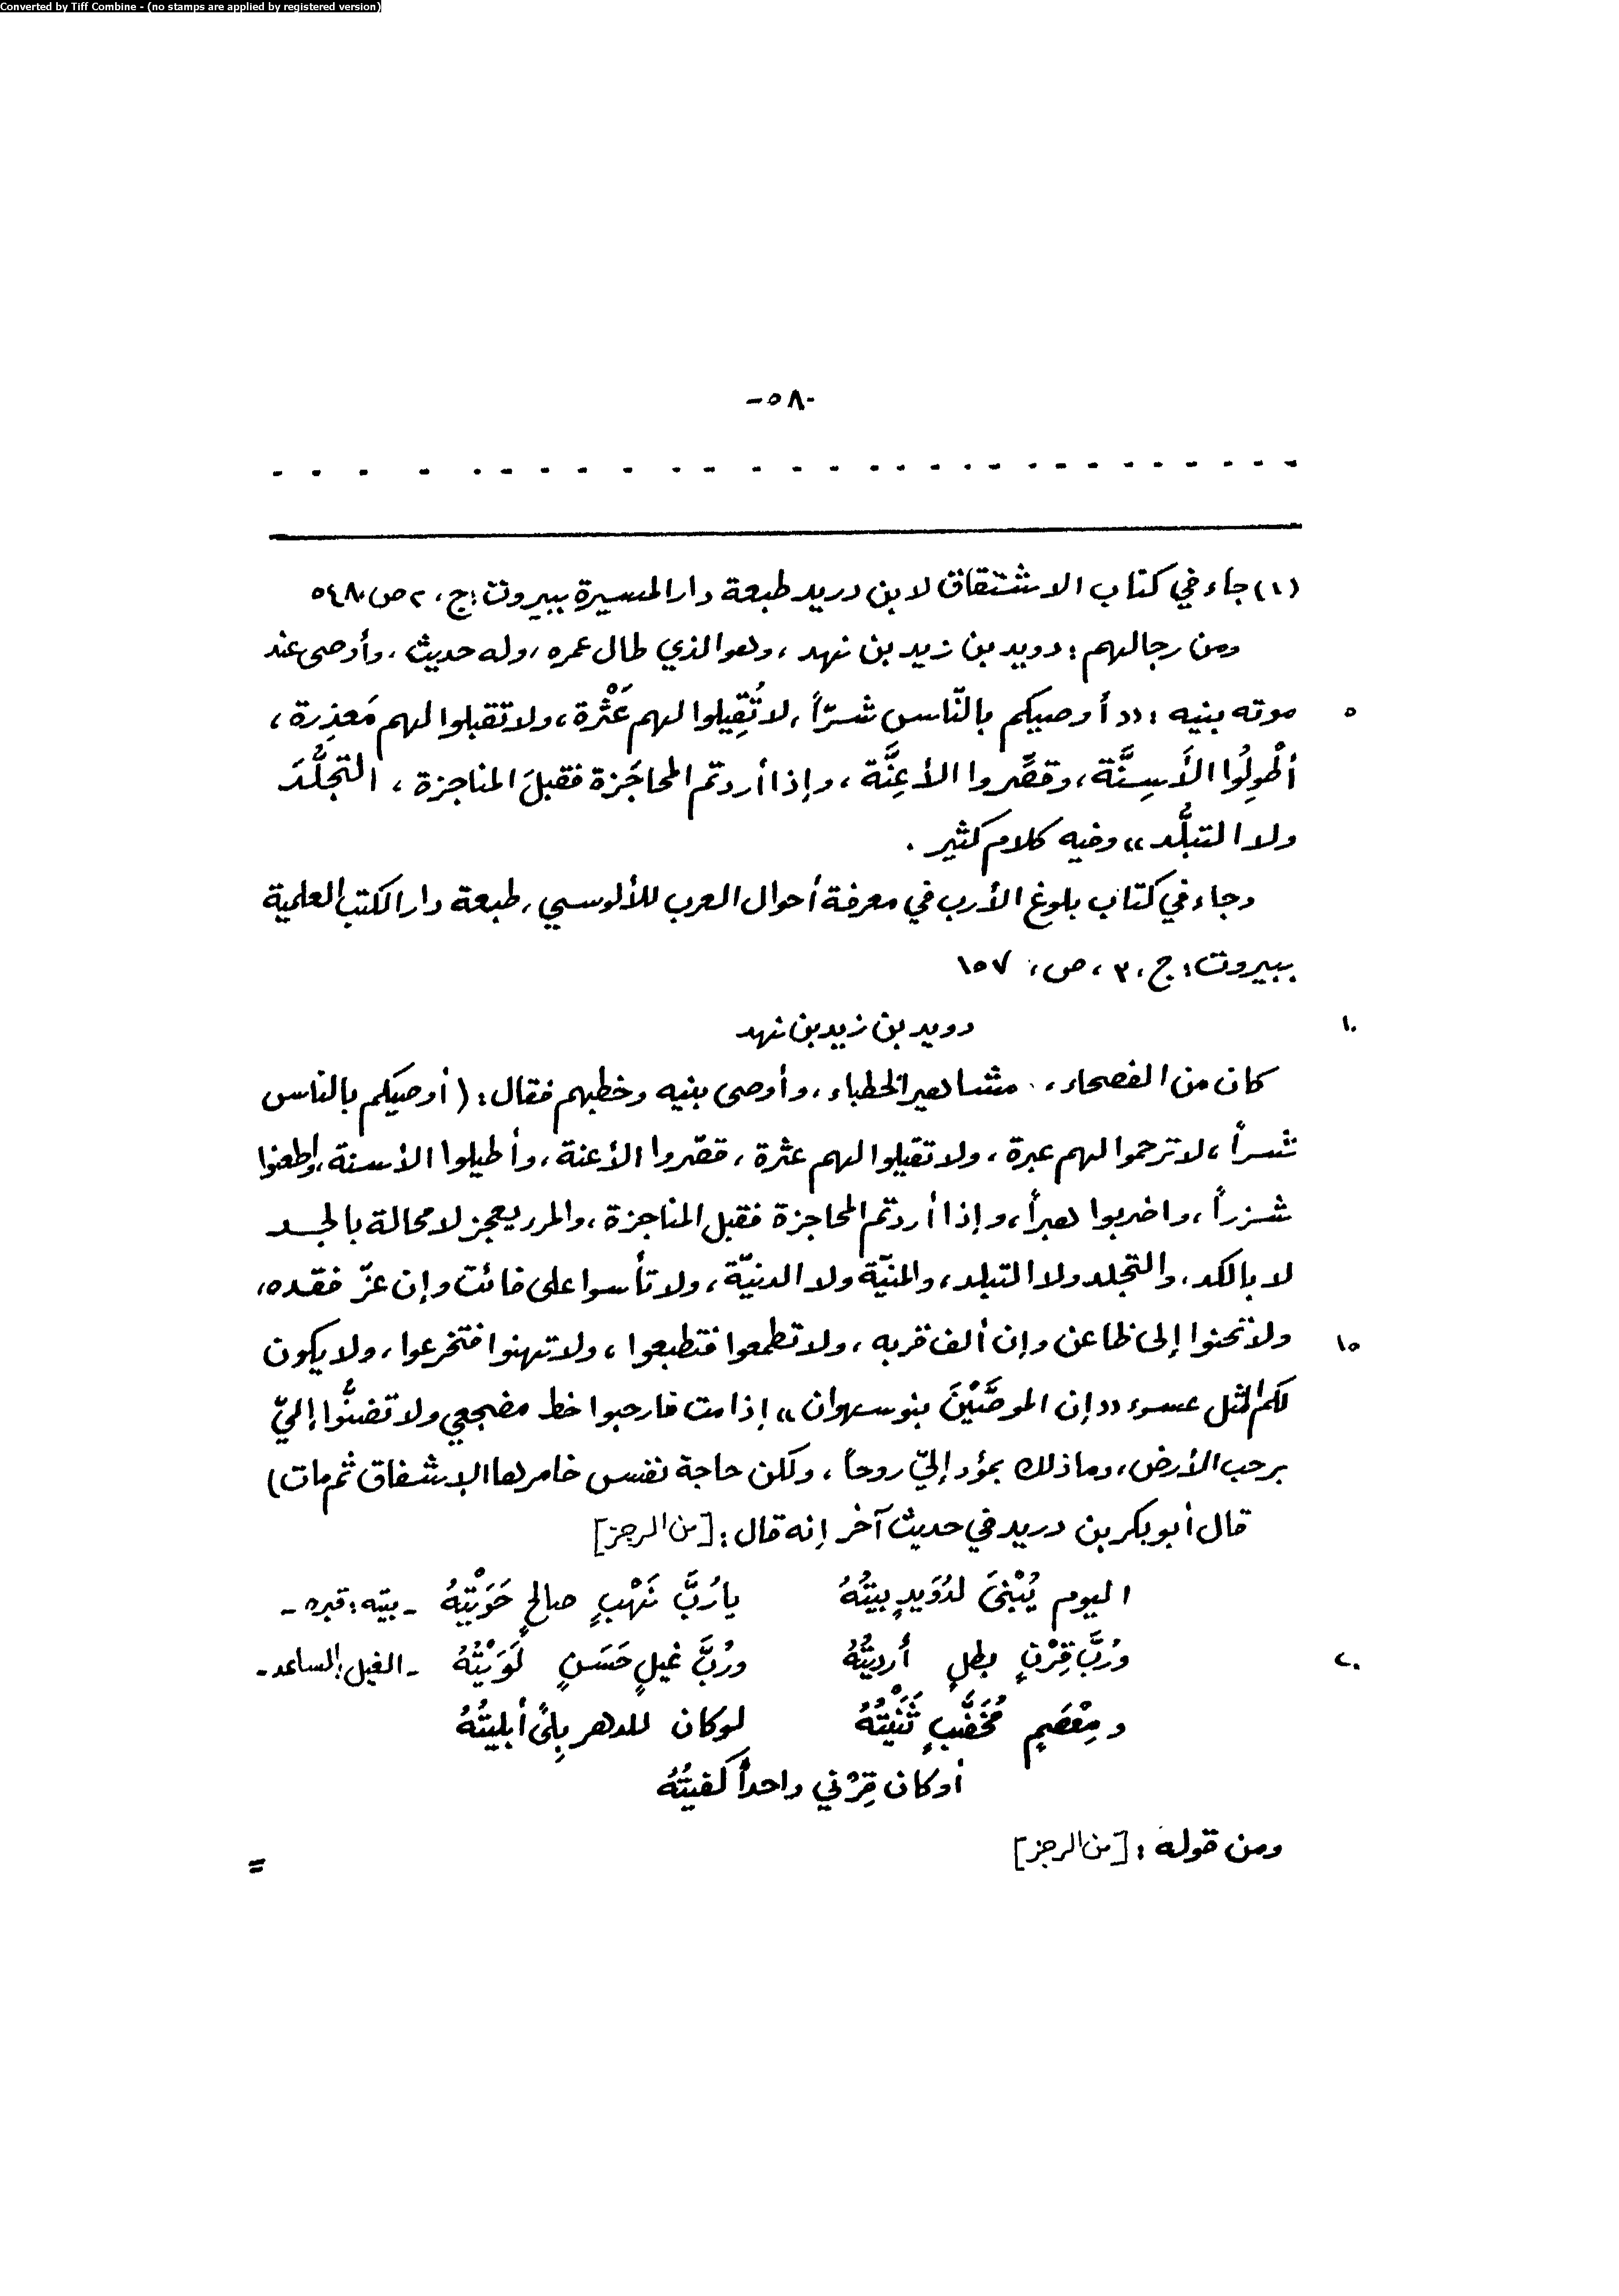 Converted by Tiff Combine - (no stamps are applied by registered version)
-٥٨-
(١) جاء في كتاب الاشتقاق لابن دريد طبعة دار المسيرة ببيروت: ج، ٢ ص، ٥٤٨
ومن رجالهم: دويد بن زيد بن نهد، وهو الذي طال عمره، وله حديث، وأوصى عند
٥ موته بنيه: «أوصيكم بالنّاس شرّاً، لا تُقِيلوا لهم عَثْرة، ولا تقبلوا لهم مَعذِرة،
أطْوِلُوا الأَسِنَّة، وقصِّروا الأعِنَّة، وإذا أردتم المحاجَزة فقبلَ المناجزة، التجلُّدَ
ولا التبلُّد» وفيه كلام كثير.
وجاء في كتاب بلوغ الأرب في معرفة أحوال العرب للألوسي، طبعة دار الكتب العلمية
ببيروت: ج، ٣، ص، ١٥٧
١٠ دويد بن زيد بن نهد
كان من الفصحاء، مشاهير الخطباء، وأوصى بنيه وخطبهم فقال: (أوصيكم بالناس
شراً، لا ترحموا لهم عبرة، ولا تقيلوا لهم عثرة، قصّروا الأعنة، وأطيلوا الأسنة، واطعنوا
شزراً، واضربوا هبراً، وإذا أردتم المحاجزة فقبل المناجزة، والمرء يعجز لا محالة بالجد
لا بالكد، والتجلد ولا التبلد، والمنيّة ولا الدنيّة، ولا تأسوا على فائت وإن عزّ فقده،
١٥ ولا تحنوا إلى ظاعن وإن ألف قربه، ولا تطمعوا فتطبعوا، ولا تهنوا فتخرعوا، ولا يكون
لكم المثل عسوء «إن الموصَّيْنَ بنو سهوان» إذا مت فارحبوا خط مضجعي ولا تضنُّوا إليّ
برحب الأرض، وما ذلك بمؤد إليّ روحاً، ولكن حاجة نفس خامرها الإشفاق ثم مات)
قال أبو بكر بن دريد في حديث آخر إنه قال: [من الرجز]
اليوم يُبْنىَ لدُوَيدٍ بيتُهُ يا رُبَّ نَهْبٍ صالحٍ حَوَيْتِهُ - بيته: قبره -
٢٠ ورُبَّ قِرْنٍ بطلٍ أرديتُهُ ورُبَّ غيلٍ حَسَنٍ لَوَيْتُهُ - الغيل: الساعد -
ومِعْصَمٍ مُخَضَّبٍ ثَنَيْتُهُ لو كان للدهر بِلىً أبليتُهُ
أو كان قِرْني واحداً كفيتُهُ
ومن قوله: [من الرجز]
=